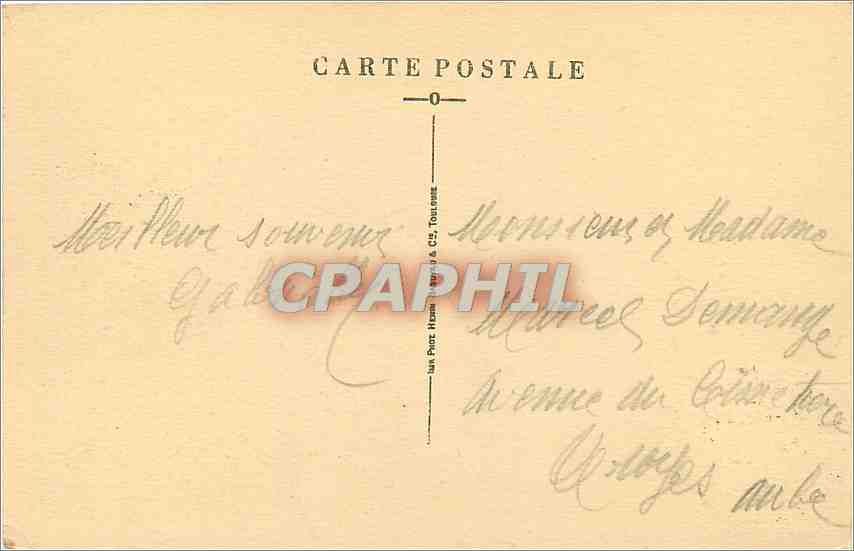 CARTE POSTALE
Meilleur souvenir
Monsieur et Madame
Marcel Demange
Avenue du Cimetière
Troyes Aube
IMP. PHOT. HENRI & Cie, TOULOUSE
CPAPHIL